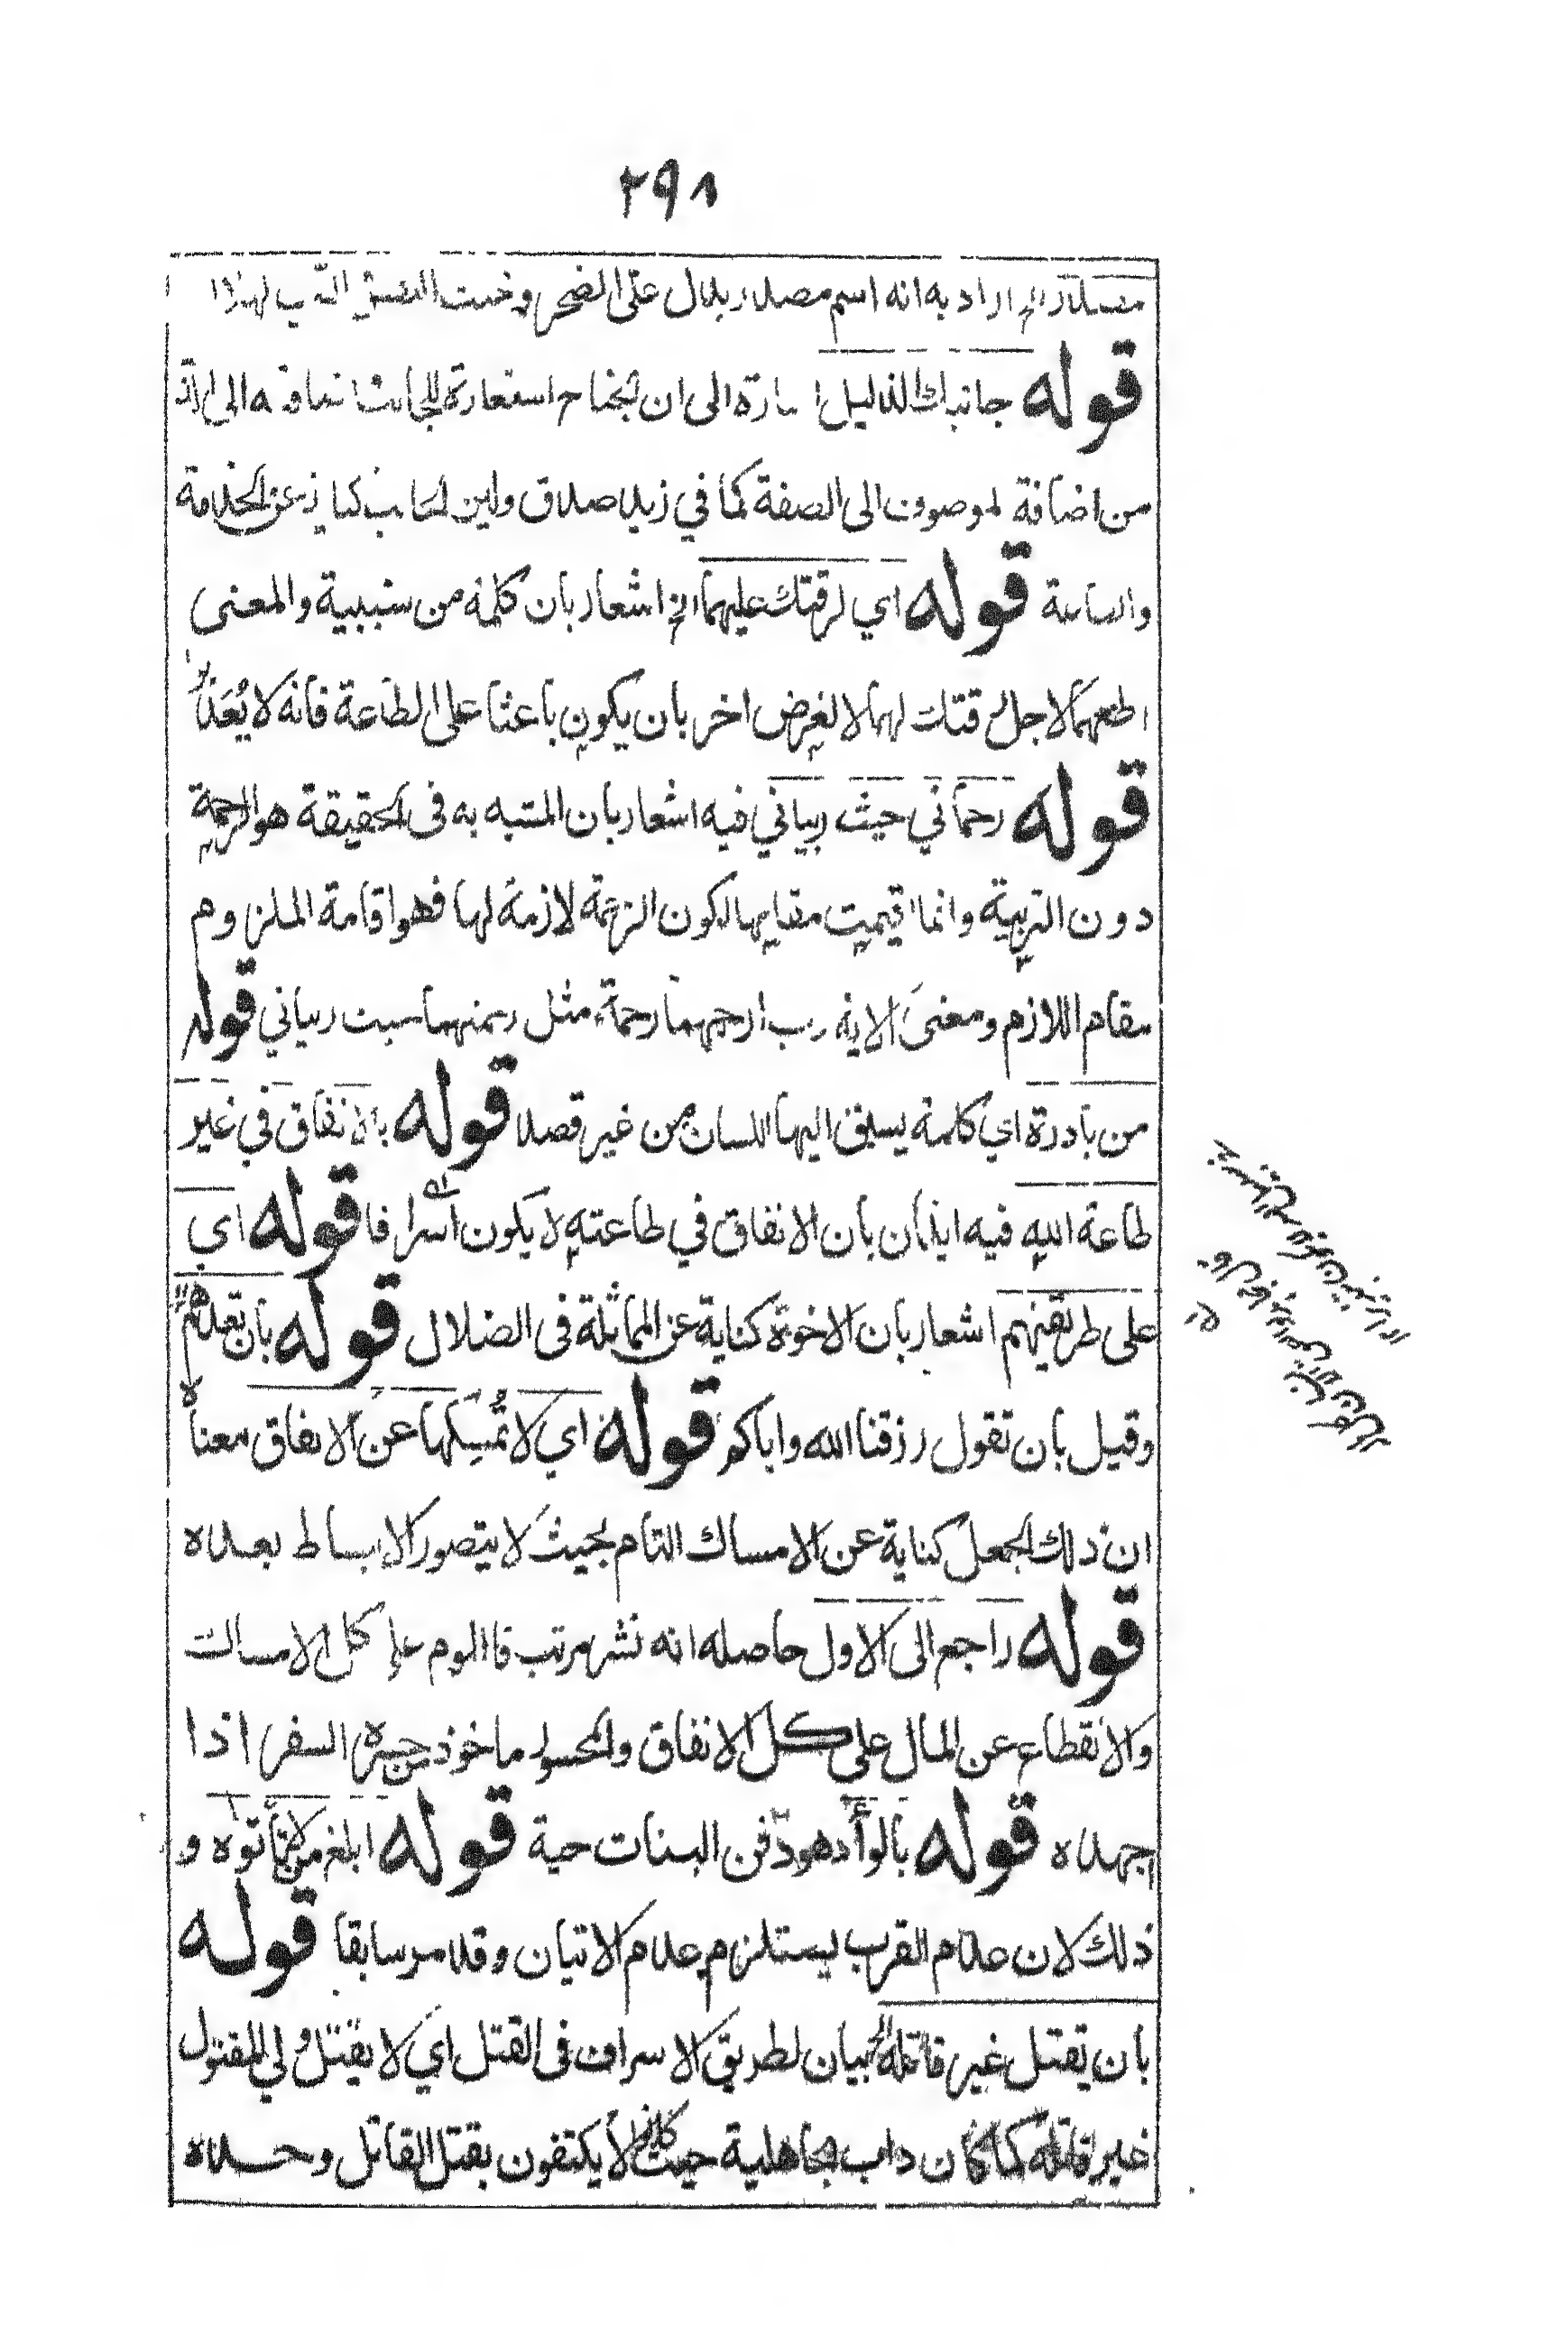 ٢٩٨
مصدر الخ اراد به انه اسم مصدر يدل على الضجر و
قوله جانبك الذليل اشارة الى ان الجناح استعارة للجانب اضافته الى الذل
من اضافة الموصوف الى الصفة كما في زيد صدق ولين الجانب كناية عن الخدمة
قوله اي لرقتك عليهما الخ اشعار بان كلمة من سببية والمعنى
اطعهما لاجل رقتك لهما لا لغرض اخر بان يكون باعثا على الطاعة فانه لا يعد
قوله رحماني حيث ربياني فيه اشعار بان المشبه به فى الحقيقة هو الرحمة
دون التربية وانما اقيمت مقامها لكون الرحمة لازمة لها فهو اقامة الملزوم
مقام اللازم ومعنى الاية رب ارحمهما رحمة مثل رحمتهما حيث ربياني قوله
من بادرة اي كلمة يسبق اليها اللسان من غير قصد قوله بالانفاق في غير
طاعة الله فيه ايذان بان الانفاق في طاعته لا يكون اسرافا قوله اي
على طريقتهم اشعار بان الاخوة كناية عن المماثلة فى الضلال قوله بان تعدهم
وقيل بان تقول رزقنا الله واياكم قوله اي لا تمسكها عن الانفاق معناه
ان ذلك الجعل كناية عن الامساك التام بحيث لا يتصور الانبساط بعده
قوله راجع الى الاول حاصله انه نشر مرتب فاللوم على كل الامساك
والانقطاع عن المال على كل الانفاق والمحسور ماخوذ من حسره السفر اذا
اجهده قوله بالوأد هو دفن البنات حية قوله ابلغ من لا تأتوه و
ذلك لان عدم القرب يستلزم عدم الاتيان وقد مر سابقا قوله
بان يقتل غير قاتله الخ بيان لطريق الاسراف فى القتل اي لا يقتل ولي المقتول
غير قاتله كما كان داب الجاهلية حيث كانوا لا يكتفون بقتل القاتل وحده